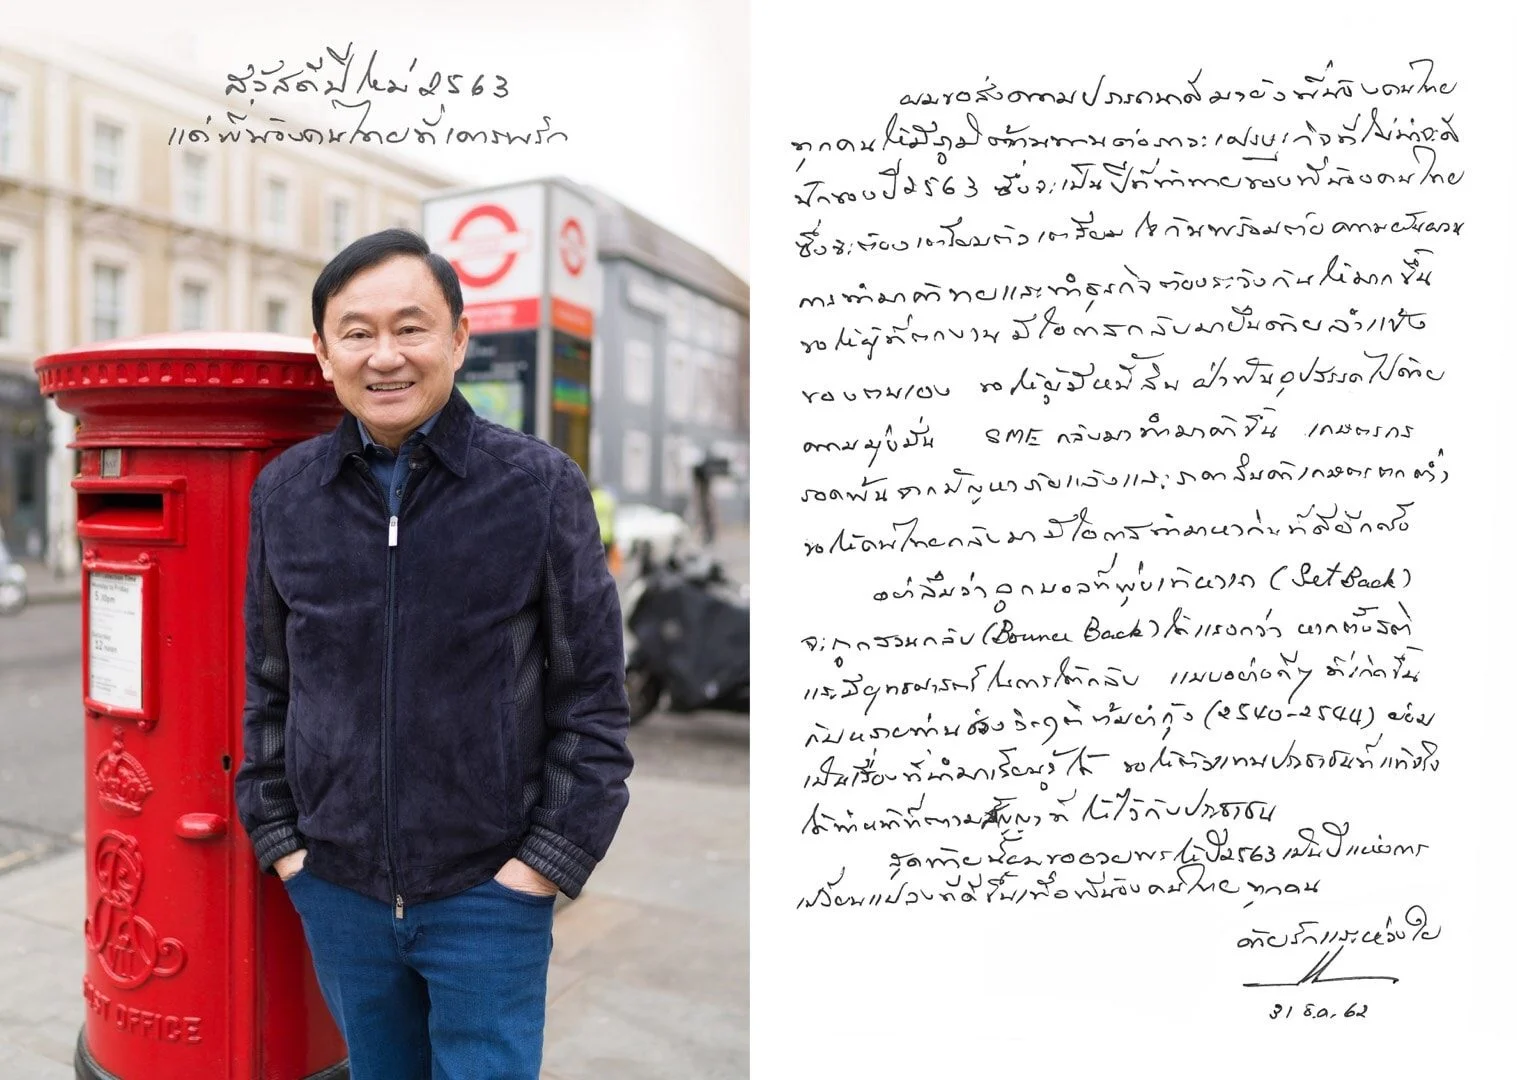 สวัสดีปีใหม่ 2563
แด่พี่น้องคนไทยที่เคารพรัก
5.30pm
12 noon
POST OFFICE
ผมขอส่งความปรารถนาดีมายังพี่น้องคนไทย
ทุกคน ให้มีภูมิต้านทานต่อภาวะเศรษฐกิจที่ไม่น่าจะดี
นักของปี 2563 ซึ่งจะเป็นปีที่ท้าทายของพี่น้องคนไทย
ซึ่งจะต้องเตรียมตัวเตรียมใจกันพร้อมด้วยความผันผวน
การทำมาค้าขายและทำธุรกิจต้องระวังกันให้มากขึ้น
ขอให้ผู้ที่ตกงาน มีโอกาสกลับมายืนด้วยลำแข้ง
ของตนเอง ขอให้ผู้มีหนี้สิน ฝ่าฟันอุปสรรคไปด้วย
ความมุ่งมั่น SME กลับมาทำมาค้าขึ้น เกษตรกร
รอดพ้นจากปัญหาภัยแล้งและราคาสินค้าเกษตรตกต่ำ
ขอให้คนไทยกลับมามีโอกาสทำมาหากินที่ดีอีกครั้ง
อย่าลืมว่า ลูกบอลที่พุ่งเข้าหาเรา (Set Back)
จะถูกสวนกลับ (Bounce Back) ได้แรงกว่า หากตั้งสติ
และมียุทธศาสตร์ในการโต้กลับ แบบอย่างดีๆ ที่เกิดขึ้น
กับหลายท่านช่วงวิกฤติต้มยำกุ้ง (2540-2544) ย่อม
เป็นเรื่องที่นำมาเรียนรู้ได้ ขอให้ตัวแทนประชาชนที่แท้จริง
ได้ทำหน้าที่ตามสัญญาที่ให้ไว้กับประชาชน
สุดท้ายนี้ผมขออวยพรให้ปี 2563 เป็นปีแห่งการ
เปลี่ยนแปลงที่ดีขึ้นเพื่อพี่น้องคนไทยทุกคน
ด้วยรักและห่วงใย
31 ธ.ค. 62